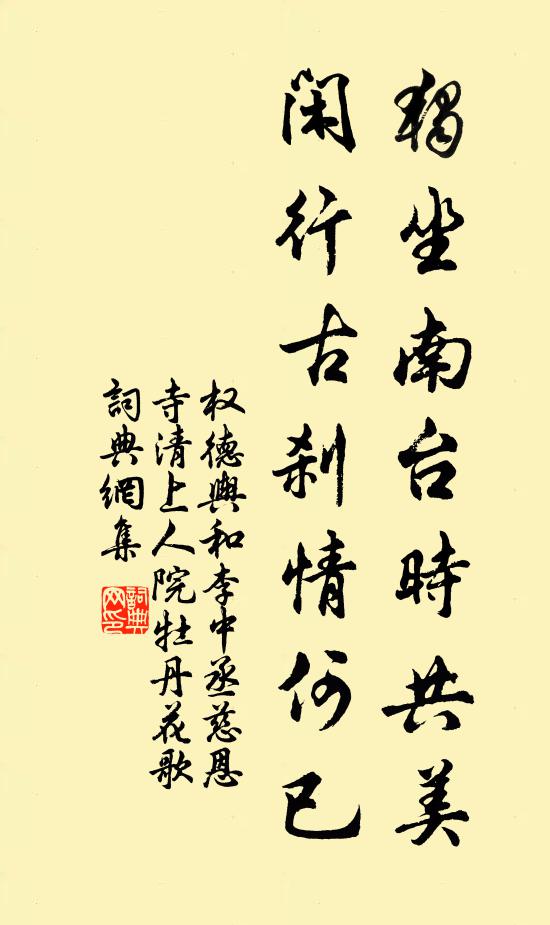 獨坐南台時共美
閑行古刹情何已
权德輿和李中丞慈恩
寺清上人院牡丹花歌
詞典網集
詞典
网印